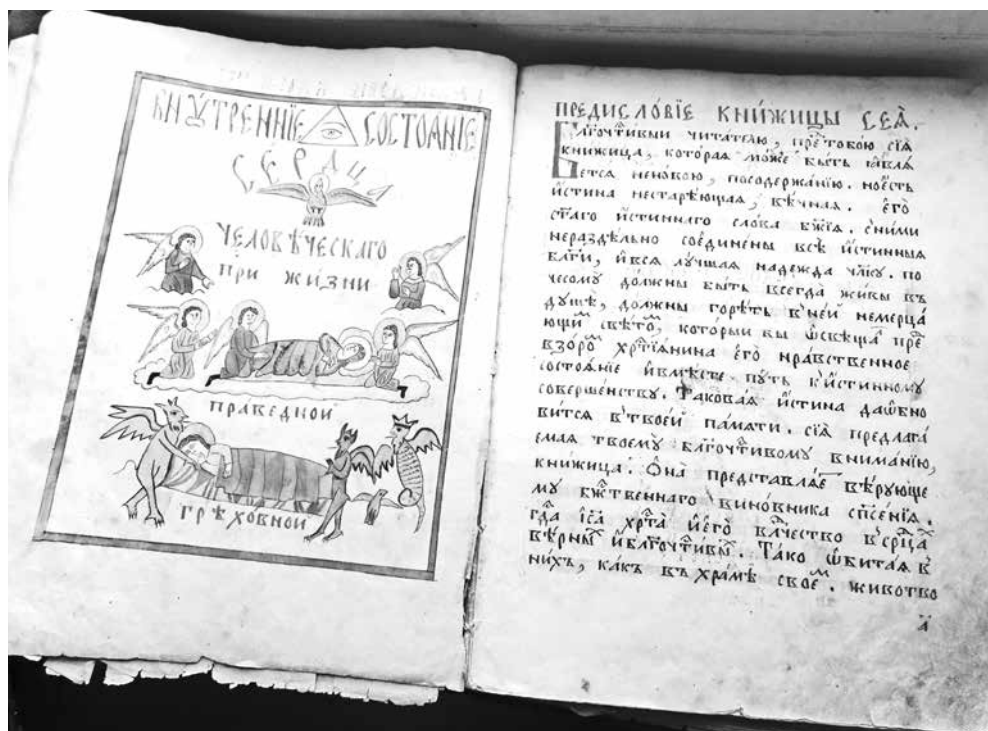 ВНꙋ́ТРЕННІЕ СОСТОѦНІЕ
СЕРДЦА
ЧЕЛОВѢ́ЧЕСКАГО
ПРИ ЖИ́ЗНИ
ПРА́ВЕДНОИ
ГРѢХО́ВНОИ
ПРЕДИСЛО́ВІЕ КНИ́ЖИЦЫ СЕѦ̀.
Блг҃очⷭ҇тивыи читателю, преⷣтобою сїѧ
книжица, кото́раѧ мо́же быть ꙗвлѧ
ется нено́вою, посодержа́нїю. ноесть
и́стина нестарѣ́ющаѧ, вѣ́чнаѧ. єго̀
ст҃аго и́стиннаго сло́ва бж҃їѧ. сни́ми
нераздѣ́льно соедине́ны всѣ̀ и́стинныѧ
бла́ги, ивсѧ лу́чшаѧ наде́жда чл҃ку. по
чесому должны̀ быть всегда̀ жи́вы въ
душѐ, должны горѣ́ть вне́й немерца́
ющиⷨ свѣ́тоⷨ, который бы ѡсвѣща́ⷧ преⷣ
взо́роⷨ хрⷭ҇тїѧнина єго̀ нра́вственное
состоѧ́нїе ивмѣ́сте пу́ть ки́стинному
соверше́нству. Такова́ѧ и́стина даѡбно
ви́тсѧ втвое́й па́мѧти. сїѧ̀ предлага́
емаѧ твоему̀ блг҃очⷭ҇ти́вому внима́нїю,
кни́жица. Она̀ представлѧ́еⷮ вѣ́рующе
му бжⷭ҇твеннаго вино́вника спⷭ҇е́нїѧ.
гдⷭ҇а іс҃а хрⷭ҇та̀ иєго̀ влⷣчество всрⷣца́ⷯ
вѣ́рныⷯ иблг҃очⷭ҇ти́выⷯ. Та́ко ѡбита́ѧ в
ни́хъ, ка́къ въ хра́мѣ свое́ⷨ. живо́тво
а҃